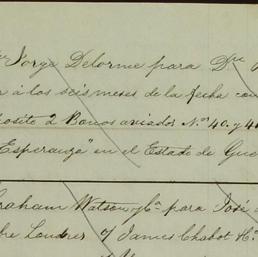 Jorge Delorme para Dn
á los seis meses de la fecha con
posito 2 Bonos aviador Nos 40. y 4
Esperanza" en el Estado de Gue
raham Watson y Ca para José
bre Londres 7 James Chabot Ho